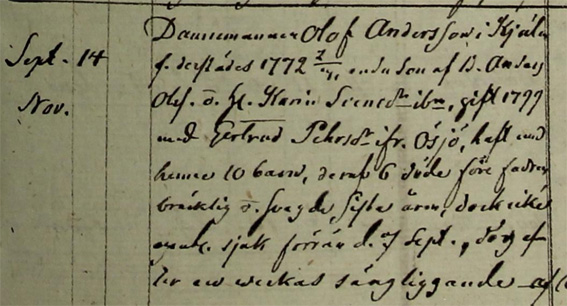 Dannemannen Olof Andersson i Kjäln
Sept. 14
f. derstädes 1772 2/4, endu Son af B. Anders
Nov.
Olofs. o. H. Karin Svensdr ibm, gift 1799
med Gertrud Pehrsdr ifr. Ösjö, haft med
henne 10 barn, deraf 6 döde före fadren
bräcklig o. svag de sista åren, dock icke
sjuk förrän d. 7 Sept., dog ef
ter en weckas sängliggande af